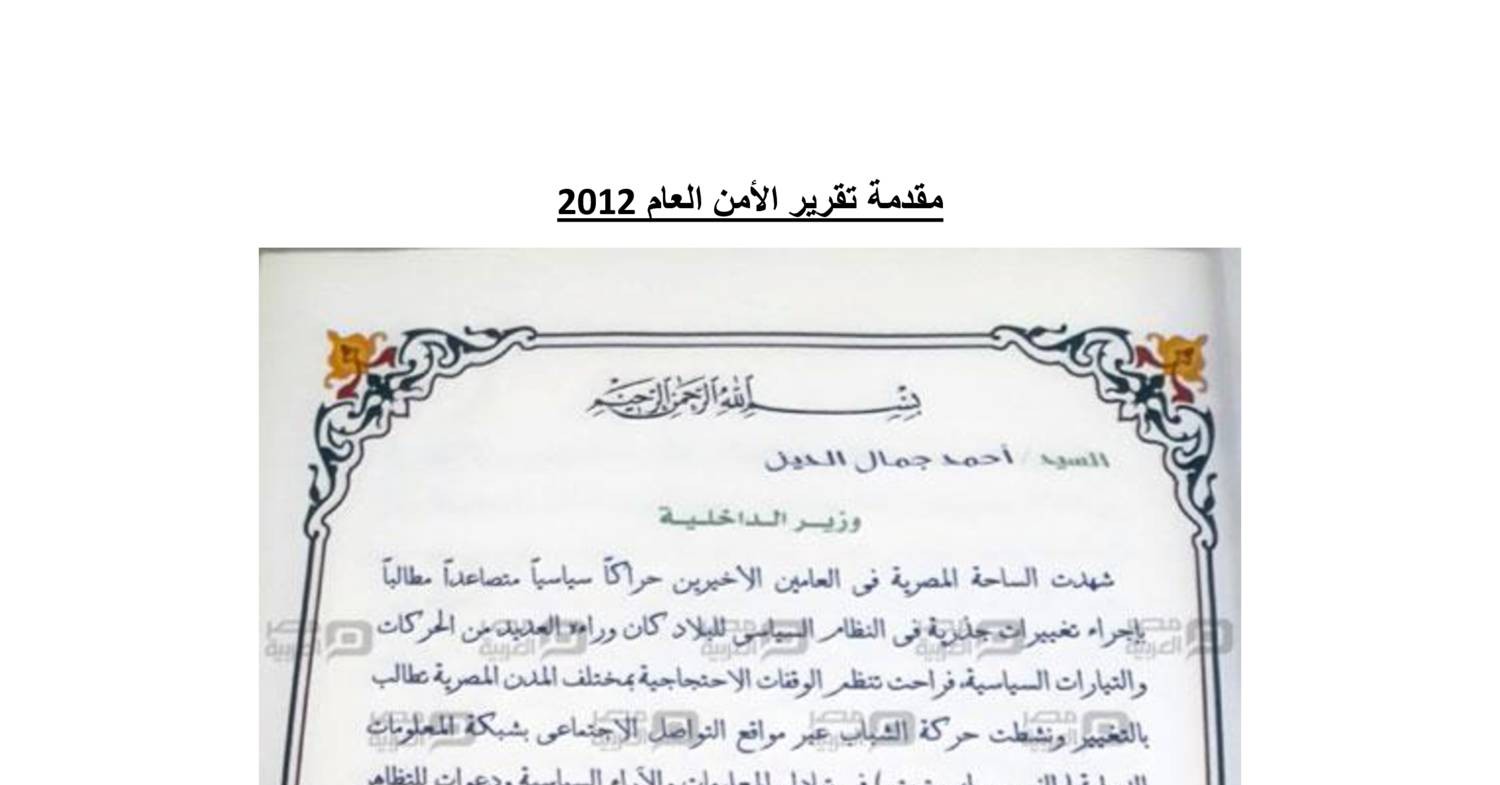 مقدمة تقرير الأمن العام 2012
بسم الله الرحمن الرحيم
السيد / أحمد جمال الدين
وزير الداخلية
شهدت الساحة المصرية فى العامين الاخيرين حراكاً سياسياً متصاعداً مطالباً
بإجراء تغييرات جذرية فى النظام السياسى للبلاد كان وراءه العديد من الحركات
والتيارات السياسية، فراحت تنظم الوقفات الاحتجاجية بمختلف المدن المصرية تطالب
بالتغيير ونشطت حركة الشباب عبر مواقع التواصل الاجتماعى بشبكة المعلومات
فى تبادل المعلومات والآراء السياسية ودعوات للتظاهر
مصر العربية